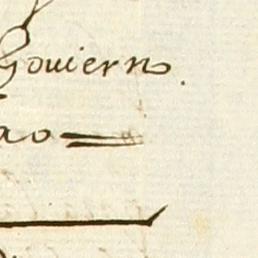 Govierno.
ao